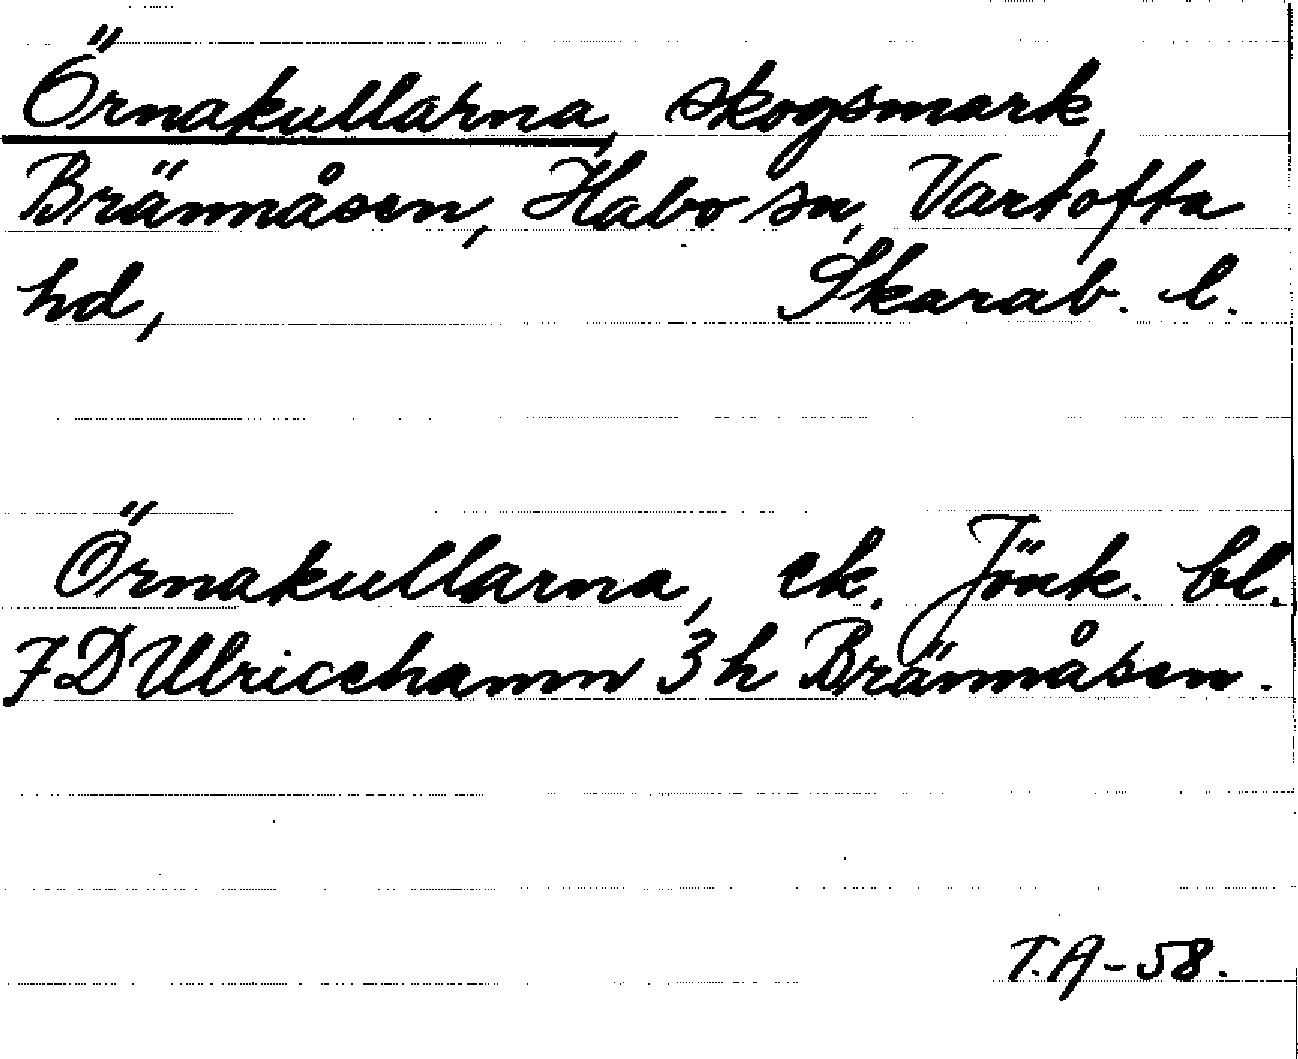 Örnakullarna, skogsmark,
Brännåsen, Habo sn, Vartofta
hd, Skarab. l.
Örnakullarna, ek. Jönk. bl.
7D Ulricehamn 3h Brännåsen.
T.A-58.